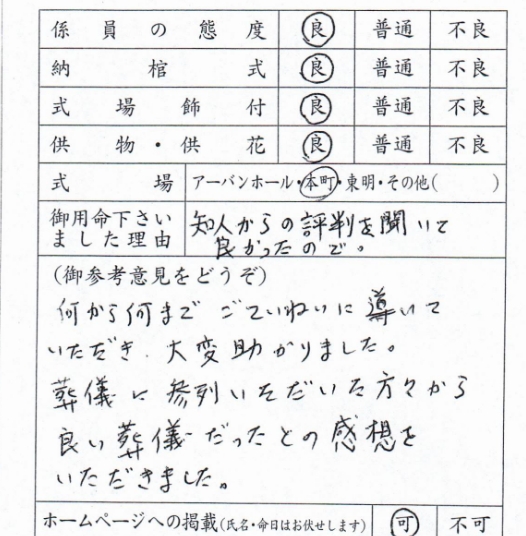 係員の態度 良 普通 不良
納棺式 良 普通 不良
式場飾付 良 普通 不良
供物・供花 良 普通 不良
式場 アーバンホール・本町・東明・その他( )
御用命下さい
ました理由
知人からの評判を聞いて
良かったので。
(御参考意見をどうぞ)
何から何まで ごていねいに導いて
いただき、大変助かりました。
葬儀に参列いただいた方々から
良い葬儀だったとの感想を
いただきました。
ホームページへの掲載(氏名・命日はお伏せします) 可 不可